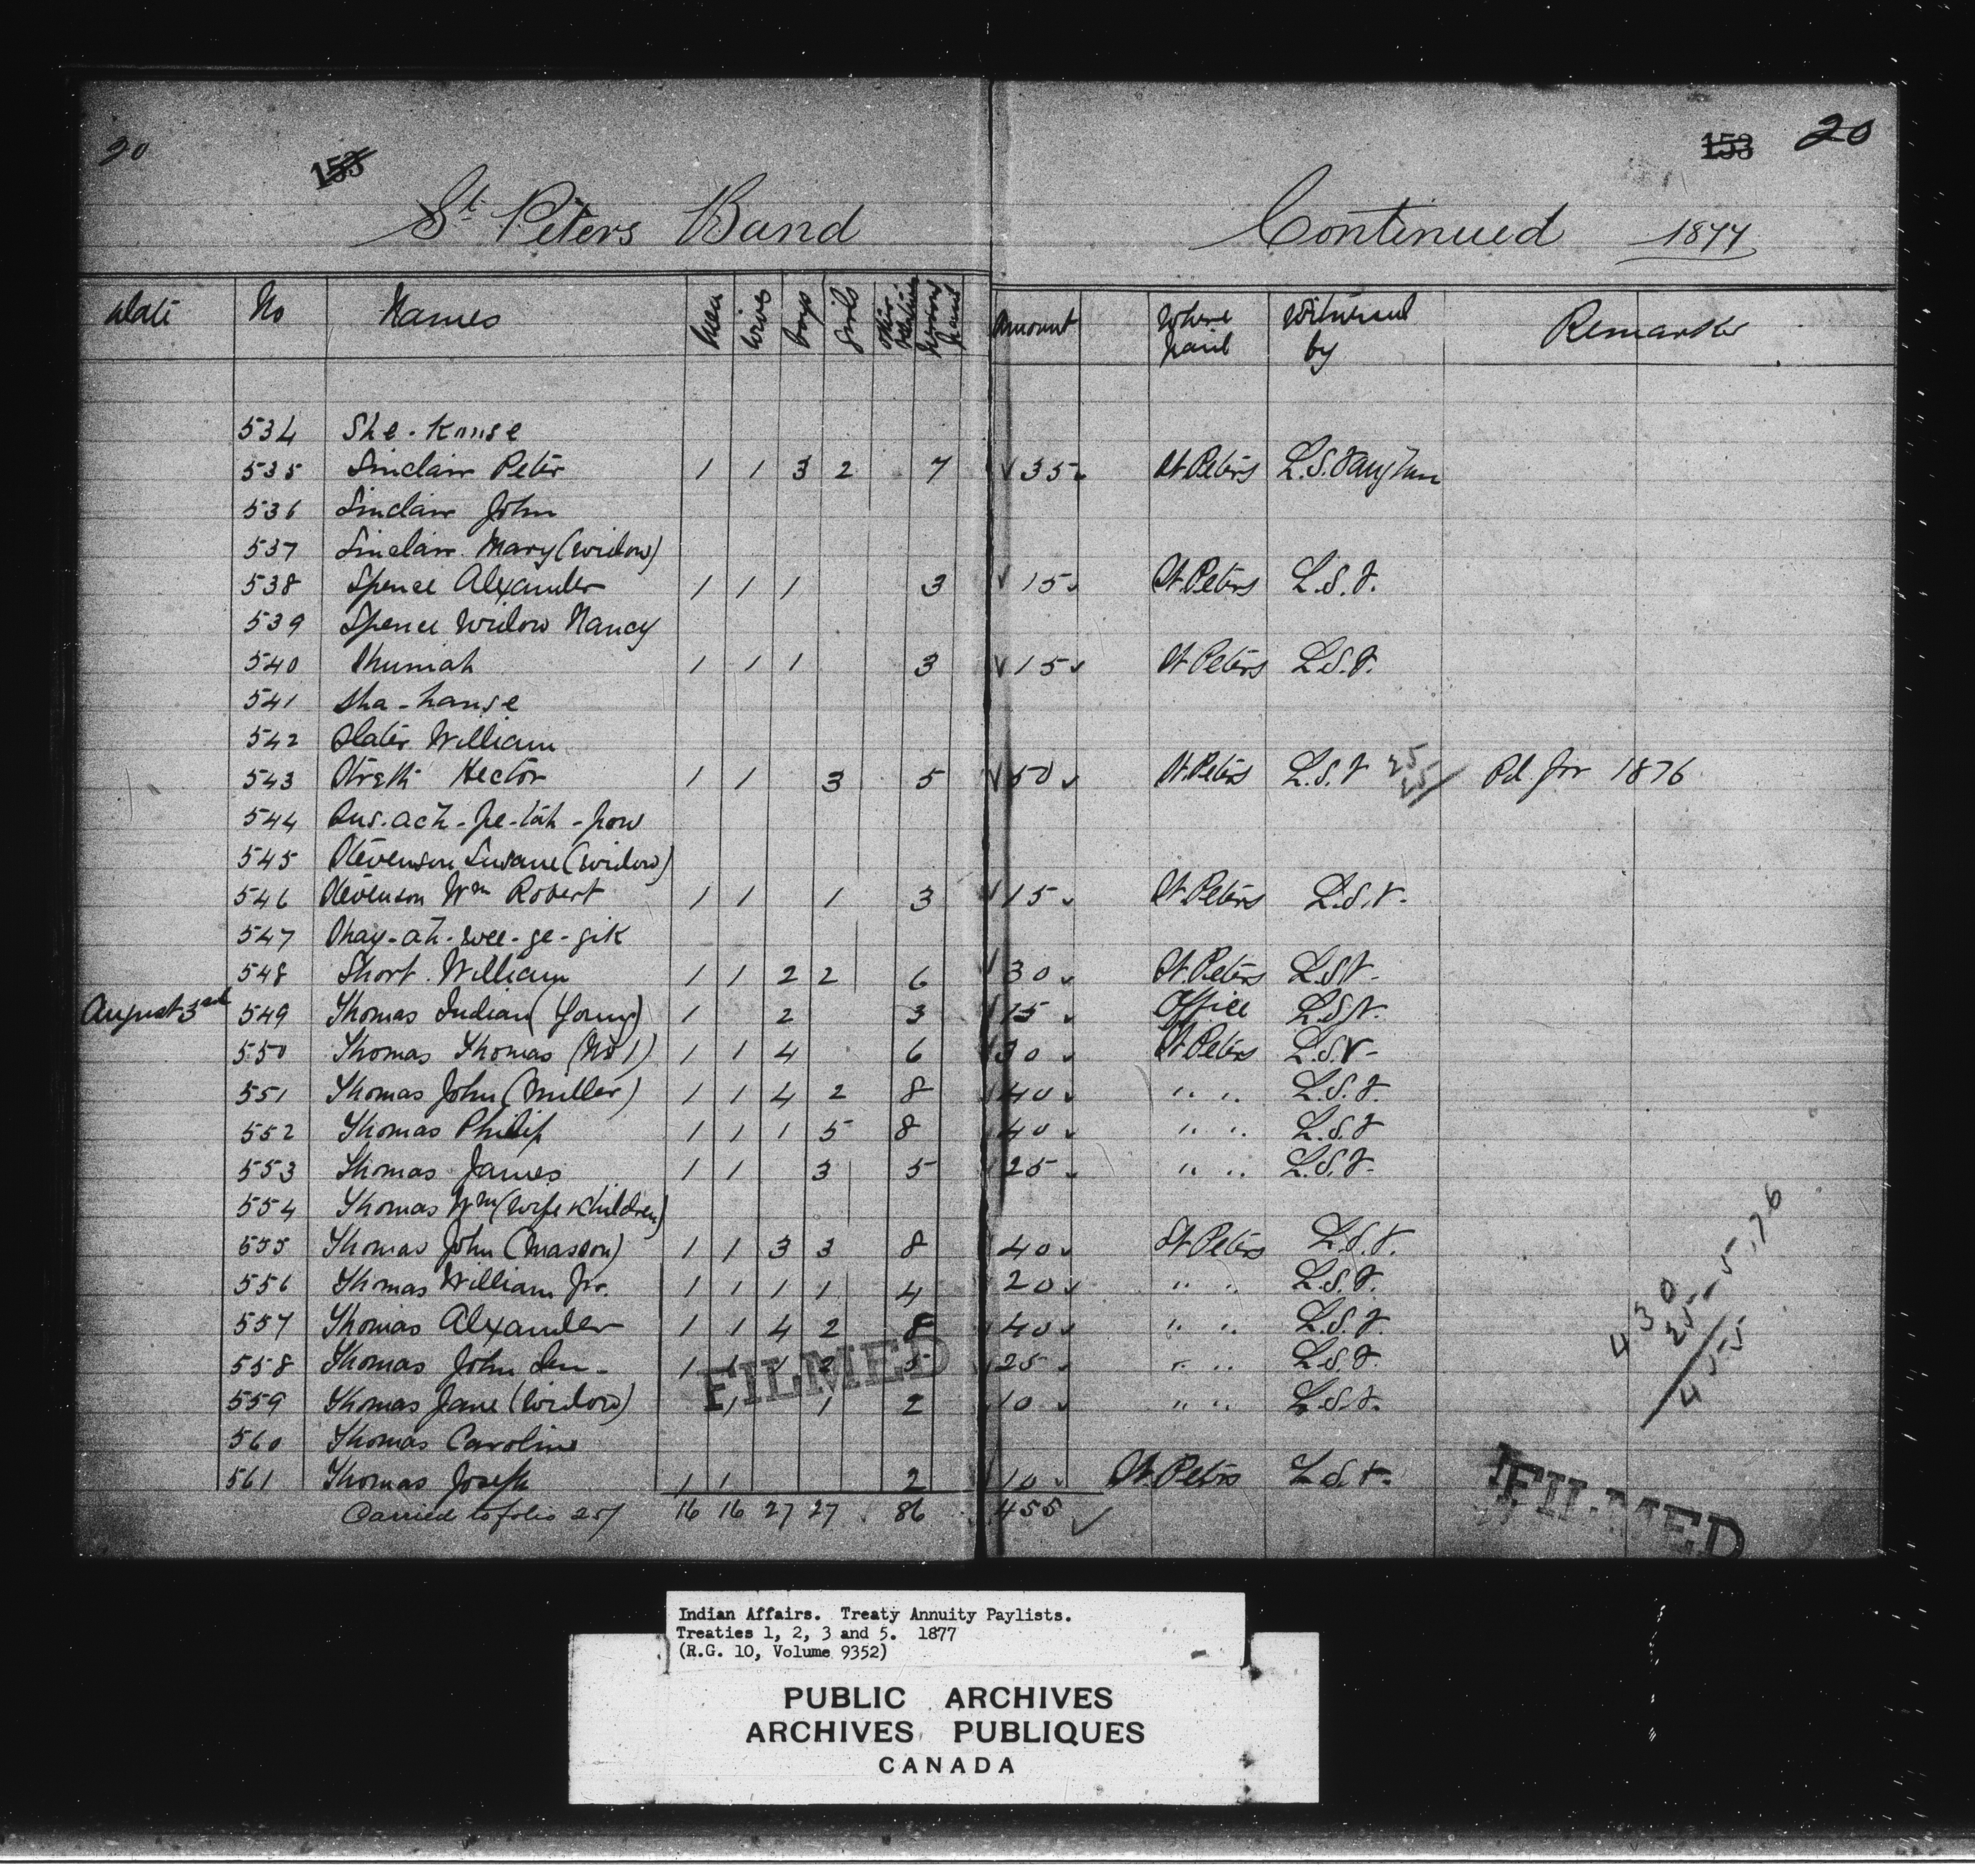 20 153 153 20
St Peters Band Continued 1877
Date No Names Men Wives Boys Girls Other Relatives Persons Paid Amount Where paid Witnessed by Remarks
534 She-Kanse
535 Sinclair Peter 1 1 3 2 7 √ 35 St Peters L.S. Vaughan
536 Sinclair John
537 Sinclair Mary (Widow)
538 Spence Alexander 1 1 1 3 √ 15 St Peters L.S.V.
539 Spence Widow Nancy
540 Shumiah 1 1 1 3 √ 15 St Peters L.S.V.
541 Sha-hanse
542 Slater William
543 Streth Hector 1 1 3 5 √ 50 St Peters L.S.V 25 25 Pd. for 1876
544 Sus-ach-pe-tah-pow
545 Stevenson (widow)
546 Stevenson Wm Robert 1 1 1 3 √ 15 St Peters L.S.V.
547 Shay-ah-wee-ge-gik
548 Short William 1 1 2 2 6 √ 30 St Peters L.S.V.
August 3rd 549 Thomas Indian (Young) 1 2 3 √ 15 Office L.S.V.
550 Thomas Thomas (No 1) 1 1 4 6 √ 30 St Peters L.S.V.
551 Thomas John (Miller) 1 1 4 2 8 √ 40 " " L.S.V.
552 Thomas Philip 1 1 1 5 8 √ 40 " " L.S.V
553 Thomas James 1 1 3 5 √ 25 " " L.S.V.
554 Thomas Wm (Wife & Children)
555 Thomas John (Masson) 1 1 3 3 8 √ 40 St Peters L.S.V.
556 Thomas William Jr. 1 1 1 1 4 20 " " L.S.V.
557 Thomas Alexander 1 1 4 2 8 √ 40 " " L.S.V.
558 Thomas John Sen- 1 1 1 2 5 √ 25 " " L.S.V.
559 Thomas Jane (Widow) 1 1 2 √ 10 " " L.S.V.
560 Thomas Caroline
561 Thomas Joseph 1 1 2 √ 10 St Peters L.S.V.
Carried to folio 257 16 16 27 27 86 455 √
430
25 - 5, 76
455
FILMED
FILMED
Indian Affairs. Treaty Annuity Paylists.
Treaties 1, 2, 3 and 5. 1877
(R.G. 10, Volume 9352)
PUBLIC ARCHIVES
ARCHIVES PUBLIQUES
CANADA